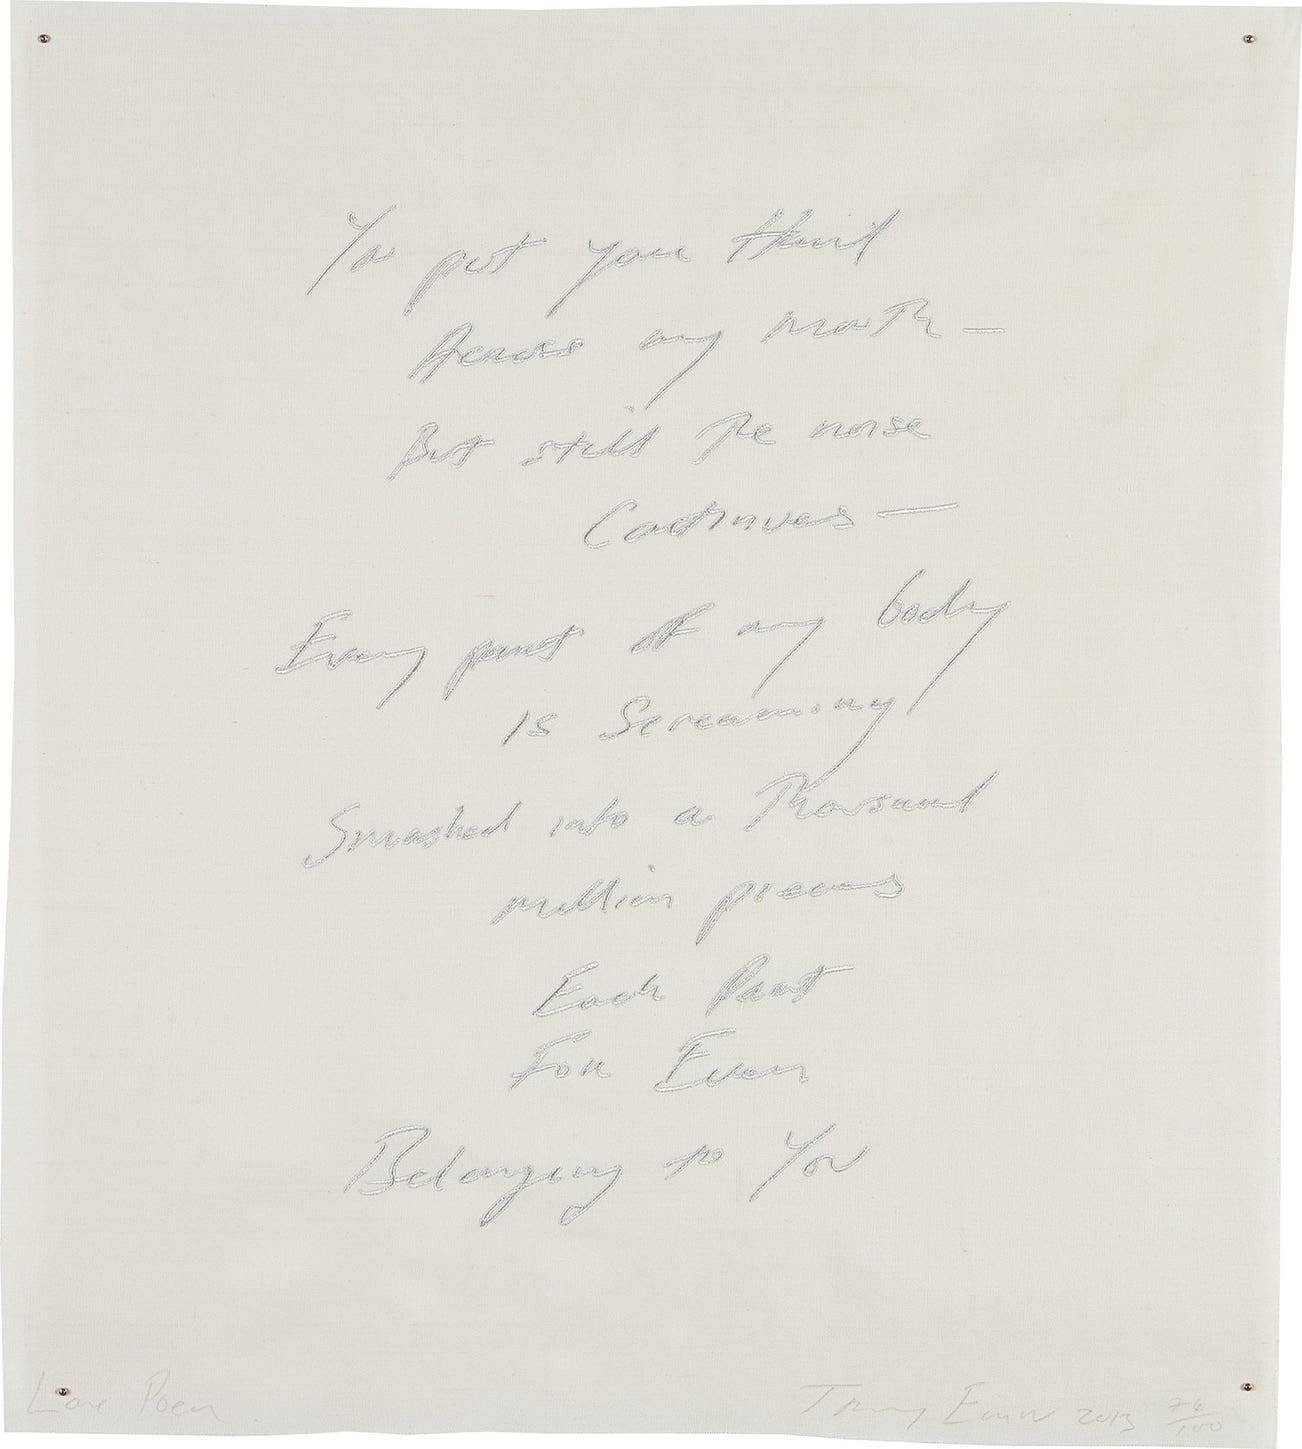 You put your Hand
Across my mouth —
But still The noise
Continues —
Every part of my body
is Screaming
Smashed into a Thousand
million pieces
Each Part
For Ever
Belonging to You
Love Poem
Tracey Emin 2013 76/100